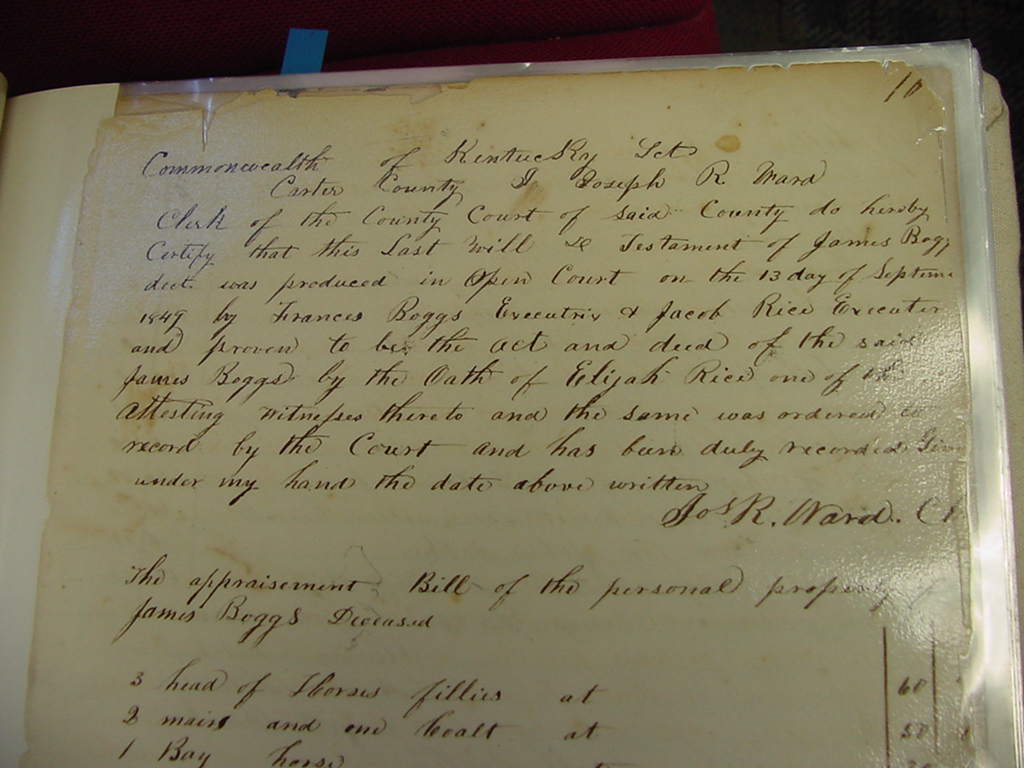 10
Commonwealth of Kentucky Sct
Carter County I Joseph R Ward
Clerk of the County Court of said County do hereby
Certify that this Last will & Testament of James Bogg
dect. was produced in Open Court on the 13 day of Septem
1849 by Frances Boggs Executrix & Jacob Rice Executor
and proven to be the act and deed of the said
James Boggs by the Oath of Elijah Rice one of the
Attesting witnesses thereto and the same was ordered to
record by the Court and has been duly recorded Given
under my hand the date above written
Jos R. Ward. Cl
The appraisement Bill of the personal property of
James Boggs Deceased
3 head of Horses fillies at 60
2 mairs and one Coalt at 50
1 Bay horse